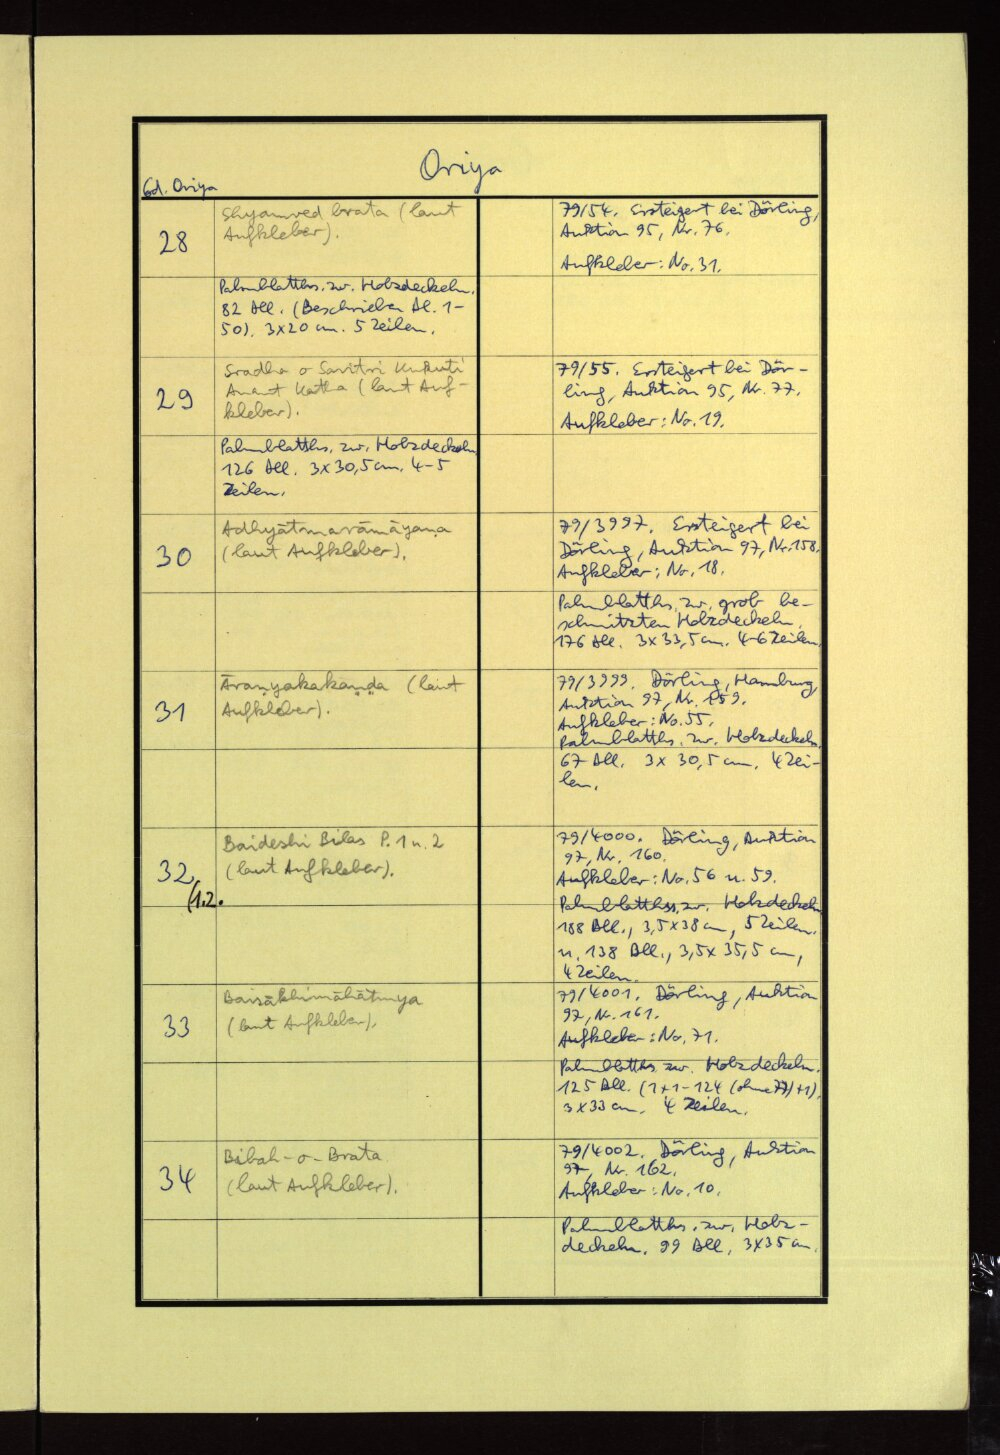 Oriya
Cod. Oriya
28
Shyamved brata (laut
Aufkleber).
79/54. Ersteigert bei Dörling,
Auktion 95, Nr. 76.
Aufkleber: No. 31.
Palmblatths. zw. Holzdeckeln.
82 Bll. (Beschrieben Bl. 1-
50). 3x20 cm. 5 Zeilen.
29
Sradha o Savitri Kukuti
Anant Katha (laut Auf-
kleber).
79/55. Ersteigert bei Dör-
ling, Auktion 95, Nr. 77.
Aufkleber: No. 19.
Palmblatths. zw. Holzdeckeln
126 Bll. 3x30,5 cm. 4-5
Zeilen.
30
Adhyātmarāmāyaṇa
(laut Aufkleber).
79/3997. Ersteigert bei
Dörling, Auktion 97, Nr. 158.
Aufkleber: No. 18.
Palmblatths. zw. grob be-
schnitzten Holzdeckeln.
176 Bll. 3x33,5 cm. 4-6 Zeilen.
31
Āraṇyakakāṇḍa (laut
Aufkleber).
79/3999. Dörling, Hamburg,
Auktion 97, Nr. 159.
Aufkleber: No. 55.
Palmblatths. zw. Holzdeckeln.
67 Bll. 3x 30,5 cm. 4 Zei-
len.
32
(1.2.
Baideshi Bilas P. 1 u. 2
(laut Aufkleber).
79/4000. Dörling, Auktion
97, Nr. 160.
Aufkleber: No. 56 u. 59.
Palmblatthss. zw. Holzdeckeln
188 Bll., 3,5x38 cm, 5 Zeilen.
u. 138 Bll., 3,5x 35,5 cm,
4 Zeilen.
33
Baisākhimāhātmya
(laut Aufkleber).
79/4001. Dörling, Auktion
97, Nr. 161.
Aufkleber: No. 71.
Palmblatths. zw. Holzdeckeln.
125 Bll. (1+1-124 (ohne 77)+1).
3x33 cm. 4 Zeilen.
34
Bibah-o-Brata
(laut Aufkleber).
79/4002. Dörling, Auktion
97, Nr. 162.
Aufkleber: No. 10.
Palmblatths. zw. Holz-
deckeln. 99 Bll, 3x35 cm.